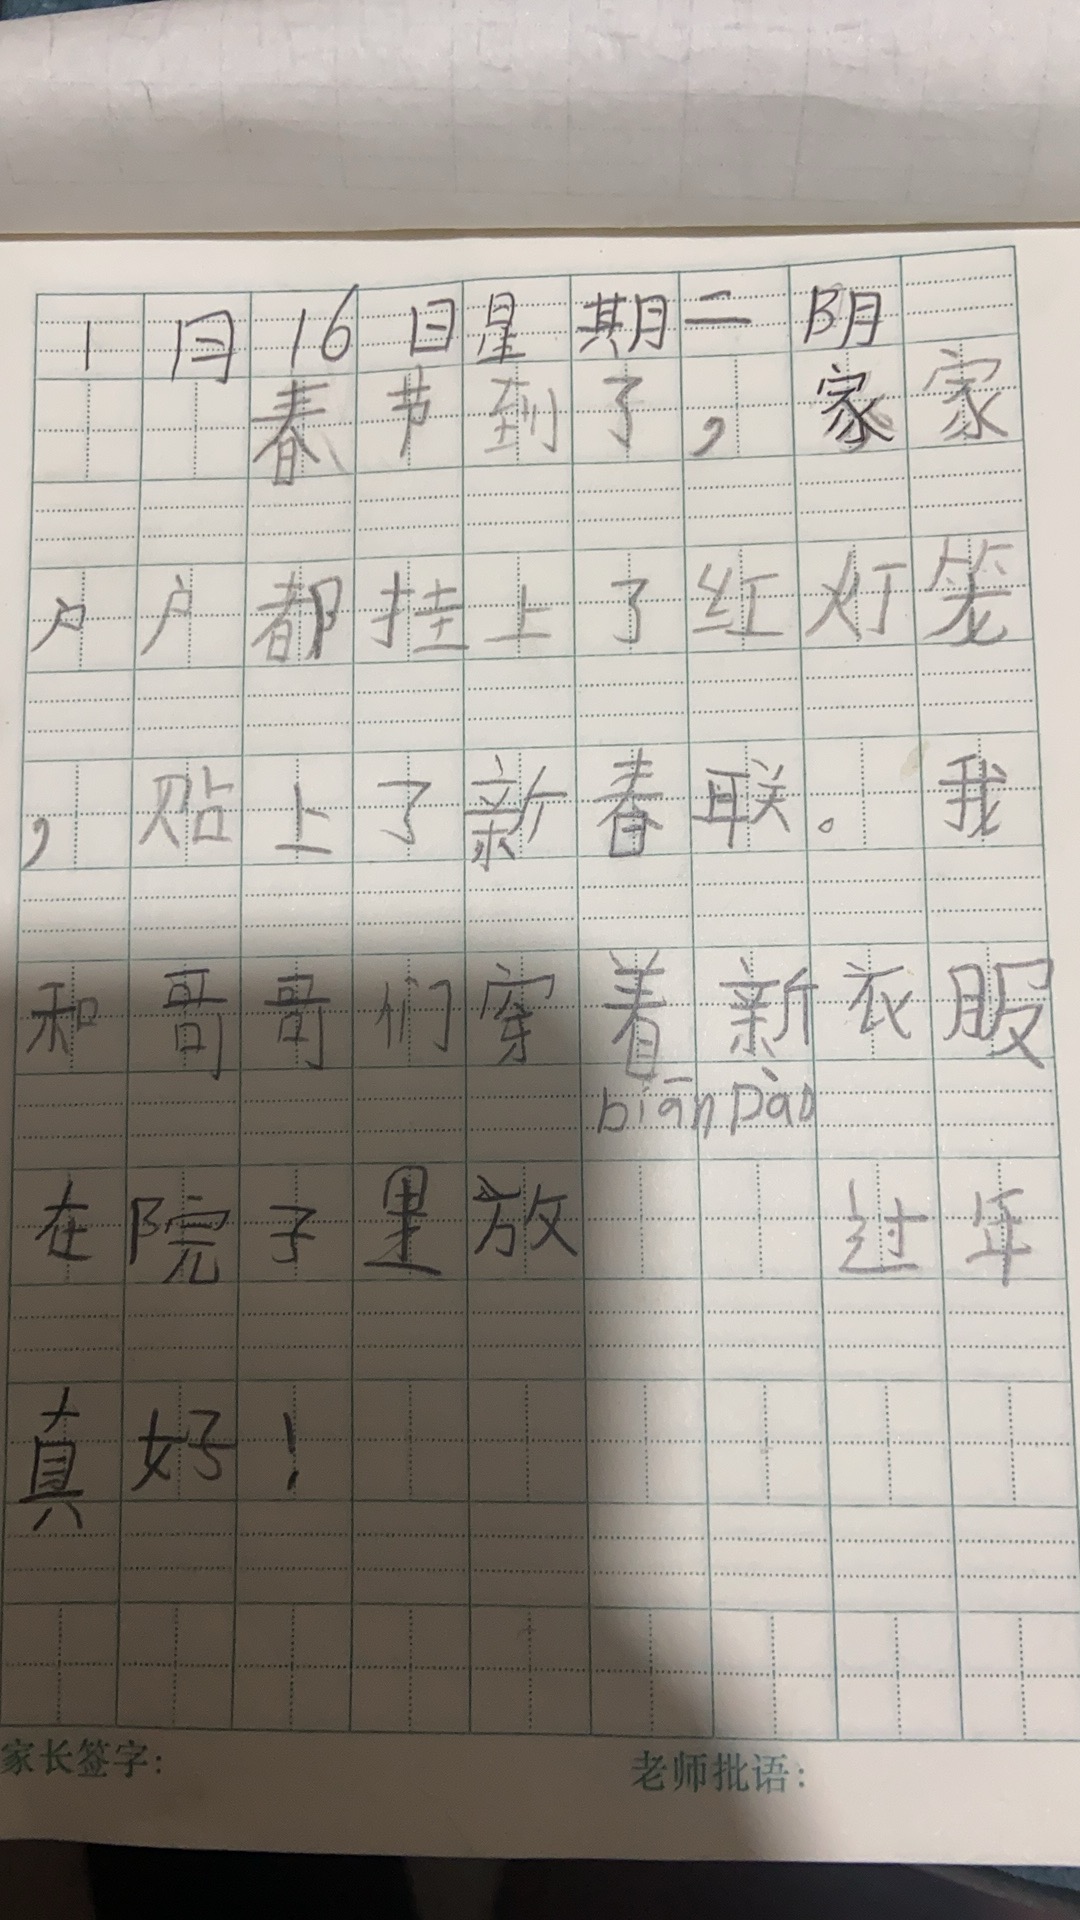 1月16日星期二 阴
春节到了，家家
户户都挂上了红灯笼
，贴上了新春联。我
和哥哥们穿着新衣服
biān pào
在院子里放 过年
真好！
家长签字： 老师批语：